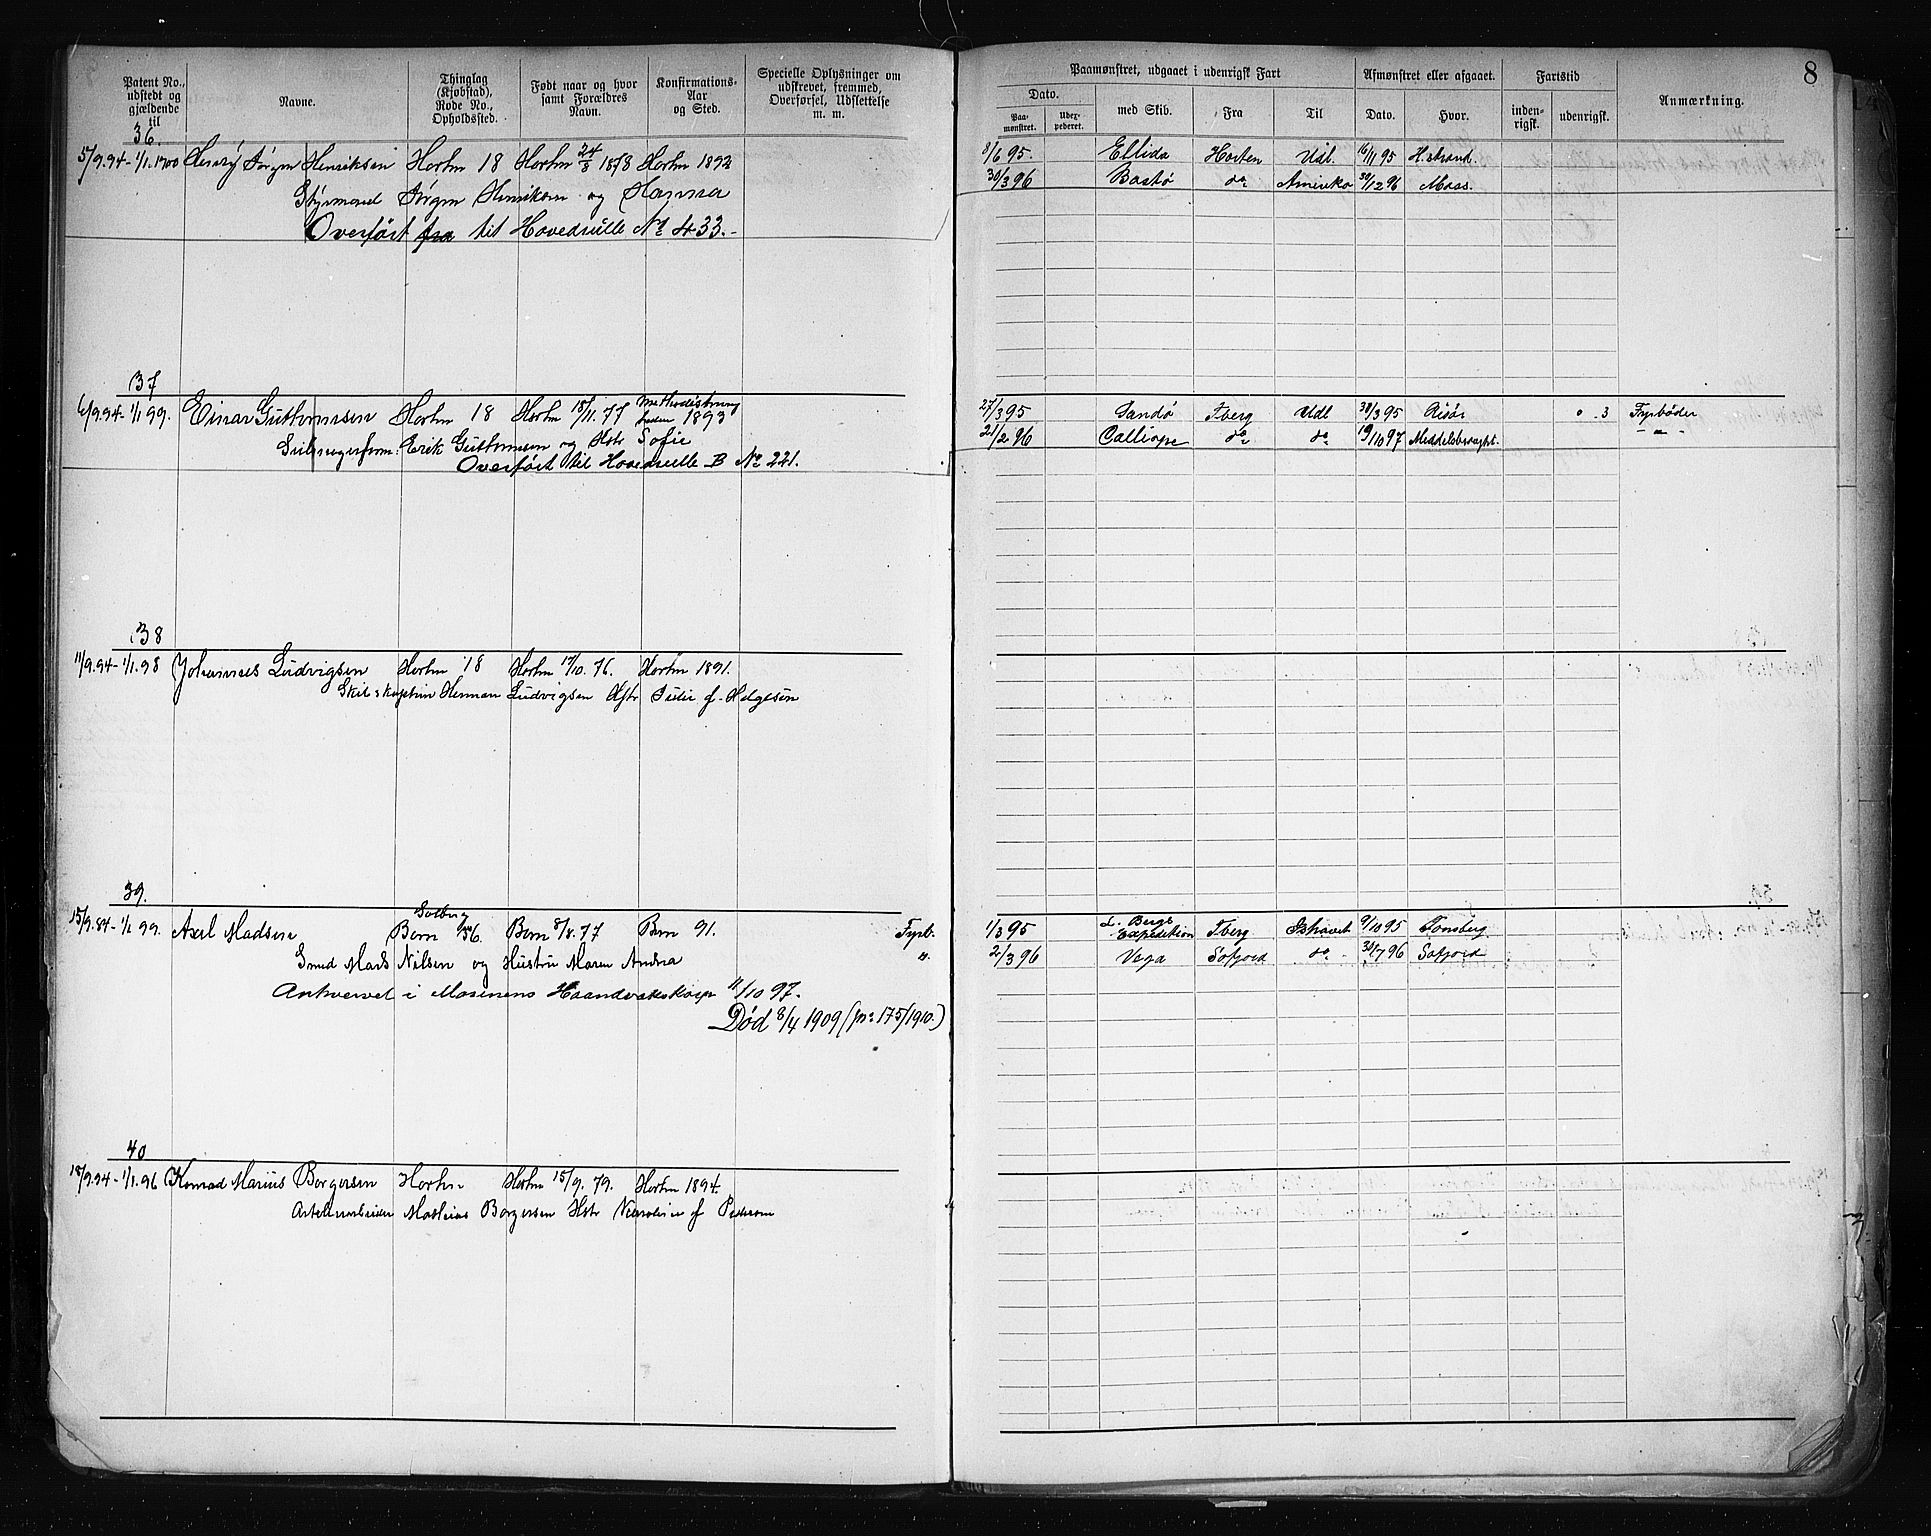 8
Patent No., udstedt og gjældende til
Navne.
Thinglag (Kjøbstad), Rode No., Opholdssted.
Født naar og hvor samt Forældres Navn.
Konfirmations-Aar og Sted.
Specielle Oplysninger om udskrevet, fremmed, Overførsel, Udslettelse m. m.
Paamønstret, udgaaet i udenrigsk Fart
Afmønstret eller afgaaet.
Fartstid
Anmærkning.
Dato.
Paa-mønstret.
med Skib.
Fra
Til
Dato.
Hvor.
inden-rigsk.
udenrigsk.
36.
5/9.94 - 1/1.1900 Henry Jørgen Henriksen Horten 18 Horten 24/3 1878 Horten 1892
8/6 95. Ellida Horten Udl. 16/11 95 H.strand.
Styrmand Jørgen Henriksen og Hanna
30/3 96 Bastø do Amerika 30/12 96 Moss.
Overført fra til Hovedrulle No 433.-
37
6/9.94 - 1/1 99. Einar Guthormsen Horten 18 Horten 15/11. 77 1893
27/3 95 Sandø Tberg Udl 30/3 95 Risør 0 . 3 Fyrbøder
Erik Guthormsen og Hstr Sofie
21/2 96 Calliope do do 19/10 97 - " -
Overført til Hovedrulle B No 221.
38
11/9.94 - 1/1.98 Johannes Ludvigsen Horten 18 Horten 17/10. 76. Horten 1891.
Skibskaptein Herman Ludvigsen Hstr Julie f. Helgesen
39.
Solberg
15/9.84 - 1/1 99. Axel Madsen Borre 56. Borre 8/8. 77 Borre 91. Fyrb.
1/3 95 L. Bergs Expedition Tberg Ishavet 9/10 95 Tønsberg
Smed Mads Nilsen og Hustru Maren Andrea "
2/3 96 Vega Søfjord do 30/7 96 Søfjord
Anhvervet i Marinens Haandværkskorps 11/10 97.
Død 8/4 1909 (Jno 175/1910.)
40
18/9.94 - 1/1.96 Konrad Marius Borgersen Horten Horten 15/9. 79. Horten 1894.
Mathias Borgersen Hstr f Pedersen